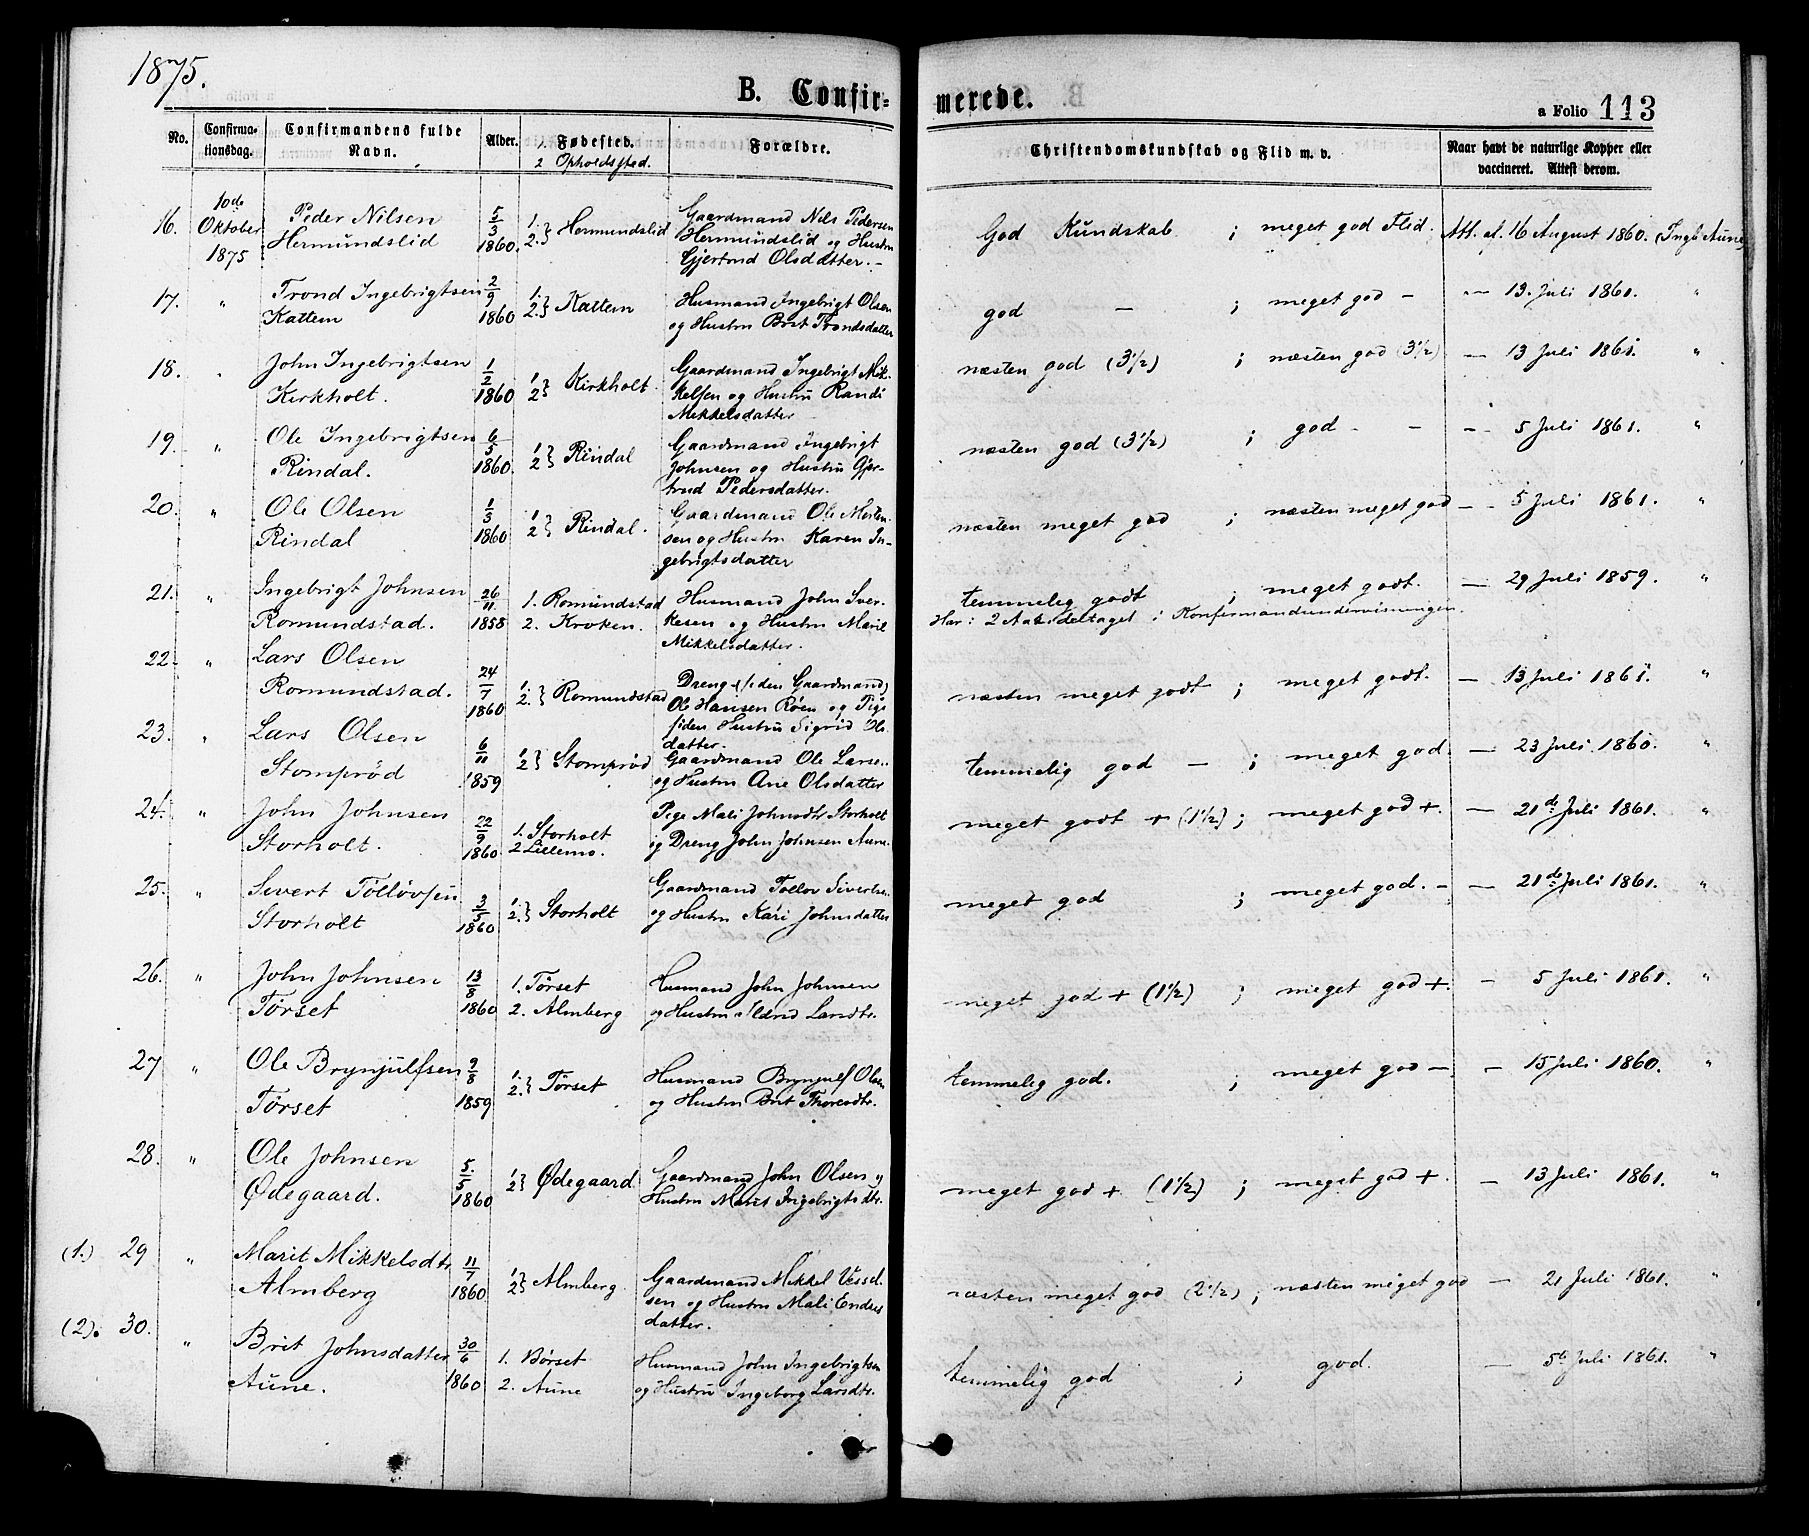 1875.
B. Confirmerede.
a Folio 113
No. Confirmationsdag. Confirmandens fulde Navn. Alder. 1. Fødested. 2 Opholdssted. Forældre. Christendomskundskab og Flid m. v. Naar havt de naturlige Kopper eller vaccineret. Attest derom.
16. 10de Oktober 1875 Peder Nilsen Hermundslid 5/3 1860. 1. 2. } Hermundslid Gaardmand Nils Pedersen Hermundslid og Hustru Gjertrud Olsdatter. - God Kundskab ; meget god Flid. Att. af 16 August 1860. (Ingb. Aune)
17. " Trond Ingebrigtsen Kattem 2/9 1860 1. 2. } Kattem Husmand Ingebrigt Olsen og Hustru Brit Trondsdatter god - ; meget god - - 13. Juli 1861. "
18. " John Ingebrigtsen Kirkholt. 1/2 1860 1. 2 } Kirkholt. Gaardmand Ingebrigt Mikkelsen og Hustru Randi Mikkelsdatter næsten god (3½) ; næsten god (3½) - 13 Juli 1861. "
19. " Ole Ingebrigtsen Rindal. 6/5 1860. 1. 2 } Rindal Gaardmand Ingebrigt Johnsen og Hustru Gjertrud Pedersdatter. næsten god (3½) ; god - - - 5 Juli 1861. "
20. " Ole Olsen Rindal 1/3 1860 1. 2 } Rindal. Gaardmand Ole Mortensen og Hustru Karen Ingebrigtsdatter næsten meget god ; næsten meget god - - 5 Juli 1861. "
21. " Ingebrigt Johnsen Romundstad. 26/11 1858 1. Romundstad 2. Kroken. Husmand John Sverkesen og Hustru Marit Mikkelsdatter. temmelig godt ; meget godt. - 29 Juli 1859. "
Har i 2 Aar deltaget i Konfirmandundervisningen.
22. " Lars Olsen Romundstad. 24/7 1860 1. 2. } Romundstad Dreng (siden Gaardmand) Ole Hansen Røen og Pige siden Hustru Sigrid Olsdatter. næsten meget godt ; meget godt. - 13 Juli 1861. "
23. " Lars Olsen Stomprød 6/11 1859 1. 2 } Stomprød Gaardmand Ole Larsen og Hustru Ane Olsdatter temmelig god - ; meget god. - 23 Juli 1860. "
24. " John Johnsen Storholt. 22/9 1860. 1. Storholt 2 Lillemo. Pige Mali Johnsdtr Storholt og Dreng John Johnsen Aune. meget godt + (1½) ; meget god +. - 21de Juli 1861. "
25. " Sivert Tølløvsen Storholt 3/5 1860 1. 2. } Storholt Gaardmand Tølløv Sivertsen og Hustru Kari Johnsdatter meget god ; meget god. - - 21de Juli 1861. "
26. " John Johnsen Tørset 13/8 1860 1. Tørset 2. Almberg Husmand John Johnsen og Hustru Eldrid Larsdtr. meget god + (1½) ; meget god +. - 5 Juli 1861. "
27 " Ole Brynjulfsen Tørset 9/8 1859 1. 2. } Tørset Husmand Brynjulf Olsen og Hustru Brit Thoresdtr. temmelig god. ; meget god -. - 15 Juli 1860. "
28. " Ole Johnsen Ødegaard. 5/5 1860 1. 2 } Ødegaard. Gaardmand John Olsen og Hustru Marit Ingebrigtsdtr. meget god +. (1½) ; meget god +. - 13 Juli 1861. "
(1.) 29 " Marit Mikkelsdtr Almberg 11/7 1860 1. 2 } Almberg Gaardmand Mikkel Vesselsen og Hustru Mali Endresdatter. næsten meget god (2½) ; næsten meget god - 21 Juli 1861. "
(2). 30. " Brit Johnsdatter Aune. 30/6 1860 1. Børset 2. Aune Husmand John Ingebrigtsen og Hustru Ingeborg Larsdtr. temmelig god ; god. - 5te Juli 1861. "